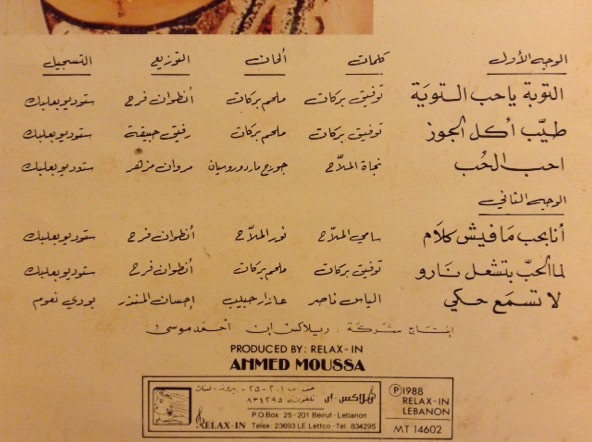 الوجه الأول كلمات ألحان التوزيع التسجيل
التوبة يا حب التوبة توفيق بركات ملحم بركات أنطوان فرح ستوديو بعلبك
طيّب أكل الجوز توفيق بركات ملحم بركات رفيق حبيقة ستوديو بعلبك
احب الحُب نجاة الملاّح جورج ماردوروسيان مروان مزهر ستوديو بعلبك
الوجه الثاني
أنا بحب مَافيش كلَام سامي الملاّح نور الملاّح أنطوان فرح ستوديو بعلبك
لما الحبّ بتشعل نَارو توفيق بركات ملحم بركات أنطوان فرح ستوديو بعلبك
لا تسمَع حكي الياس ناصر عازار حبيب إحسان المنذر بودي نعوم
إنتاج شركة : ريلاكس إن أحمد موسى
PRODUCED BY: RELAX-IN
AHMED MOUSSA
ريلاكس - ان
ص.ب ٢٠١-٢٥ - بيروت - لبنان
تلفون ٨٣٤٢٩٥
P.O Box 25-201 Beirut-Lebanon
RELAX-IN Telex 23693 LE Lettco-Tel 834295
Ⓟ1988
RELAX-IN
LEBANON
MT 14602